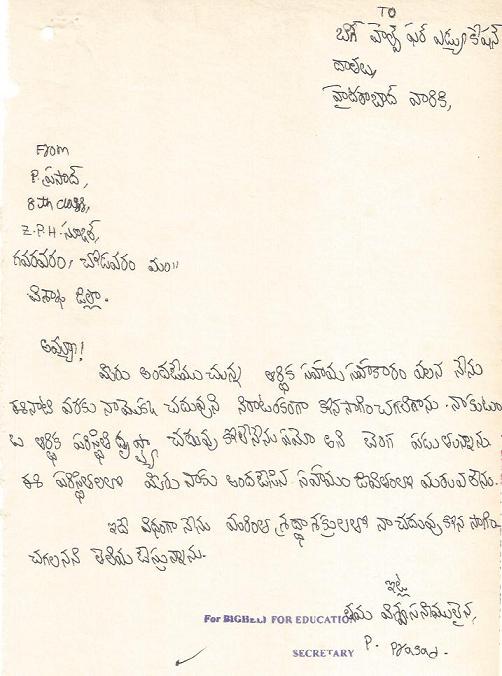 TO
బిగ్ హెల్ప్ ఫర్ ఎడ్యుకేషన్
దాతలు,
హైదరాబాద్ వారికి,
From
P. ప్రసాద్,
8th class,
Z.P.H. స్కూల్,
గవరవరం, చోడవరం మం॥
విశాఖ జిల్లా.
అమ్మా!
మీరు అందజేయుచున్న ఆర్థిక సహాయ సహకారం వలన నేను
ఈనాటి వరకు నాయొక్క చదువుని నిరాటంకంగా కొనసాగించగలిగాను. నా కుటుం
బ ఆర్థిక పరిస్థితి దృష్ట్యా చదువు కోలేనేమో అని బెంగ పడుతున్నాను.
ఈ పరిస్థితులలో మీరు నాకు అందజేసిన సహాయం జీవితంలో మరువలేను.
ఇదే విధంగా నేను మరింత శ్రద్ధాసక్తులతో నా చదువు కొన సాగిం
చగలనని తెలియ జేస్తున్నాను.
ఇట్లు
తమ విశ్వసనీయులైన,
P. Prasad.
For BIGHELP FOR EDUCATION
SECRETARY